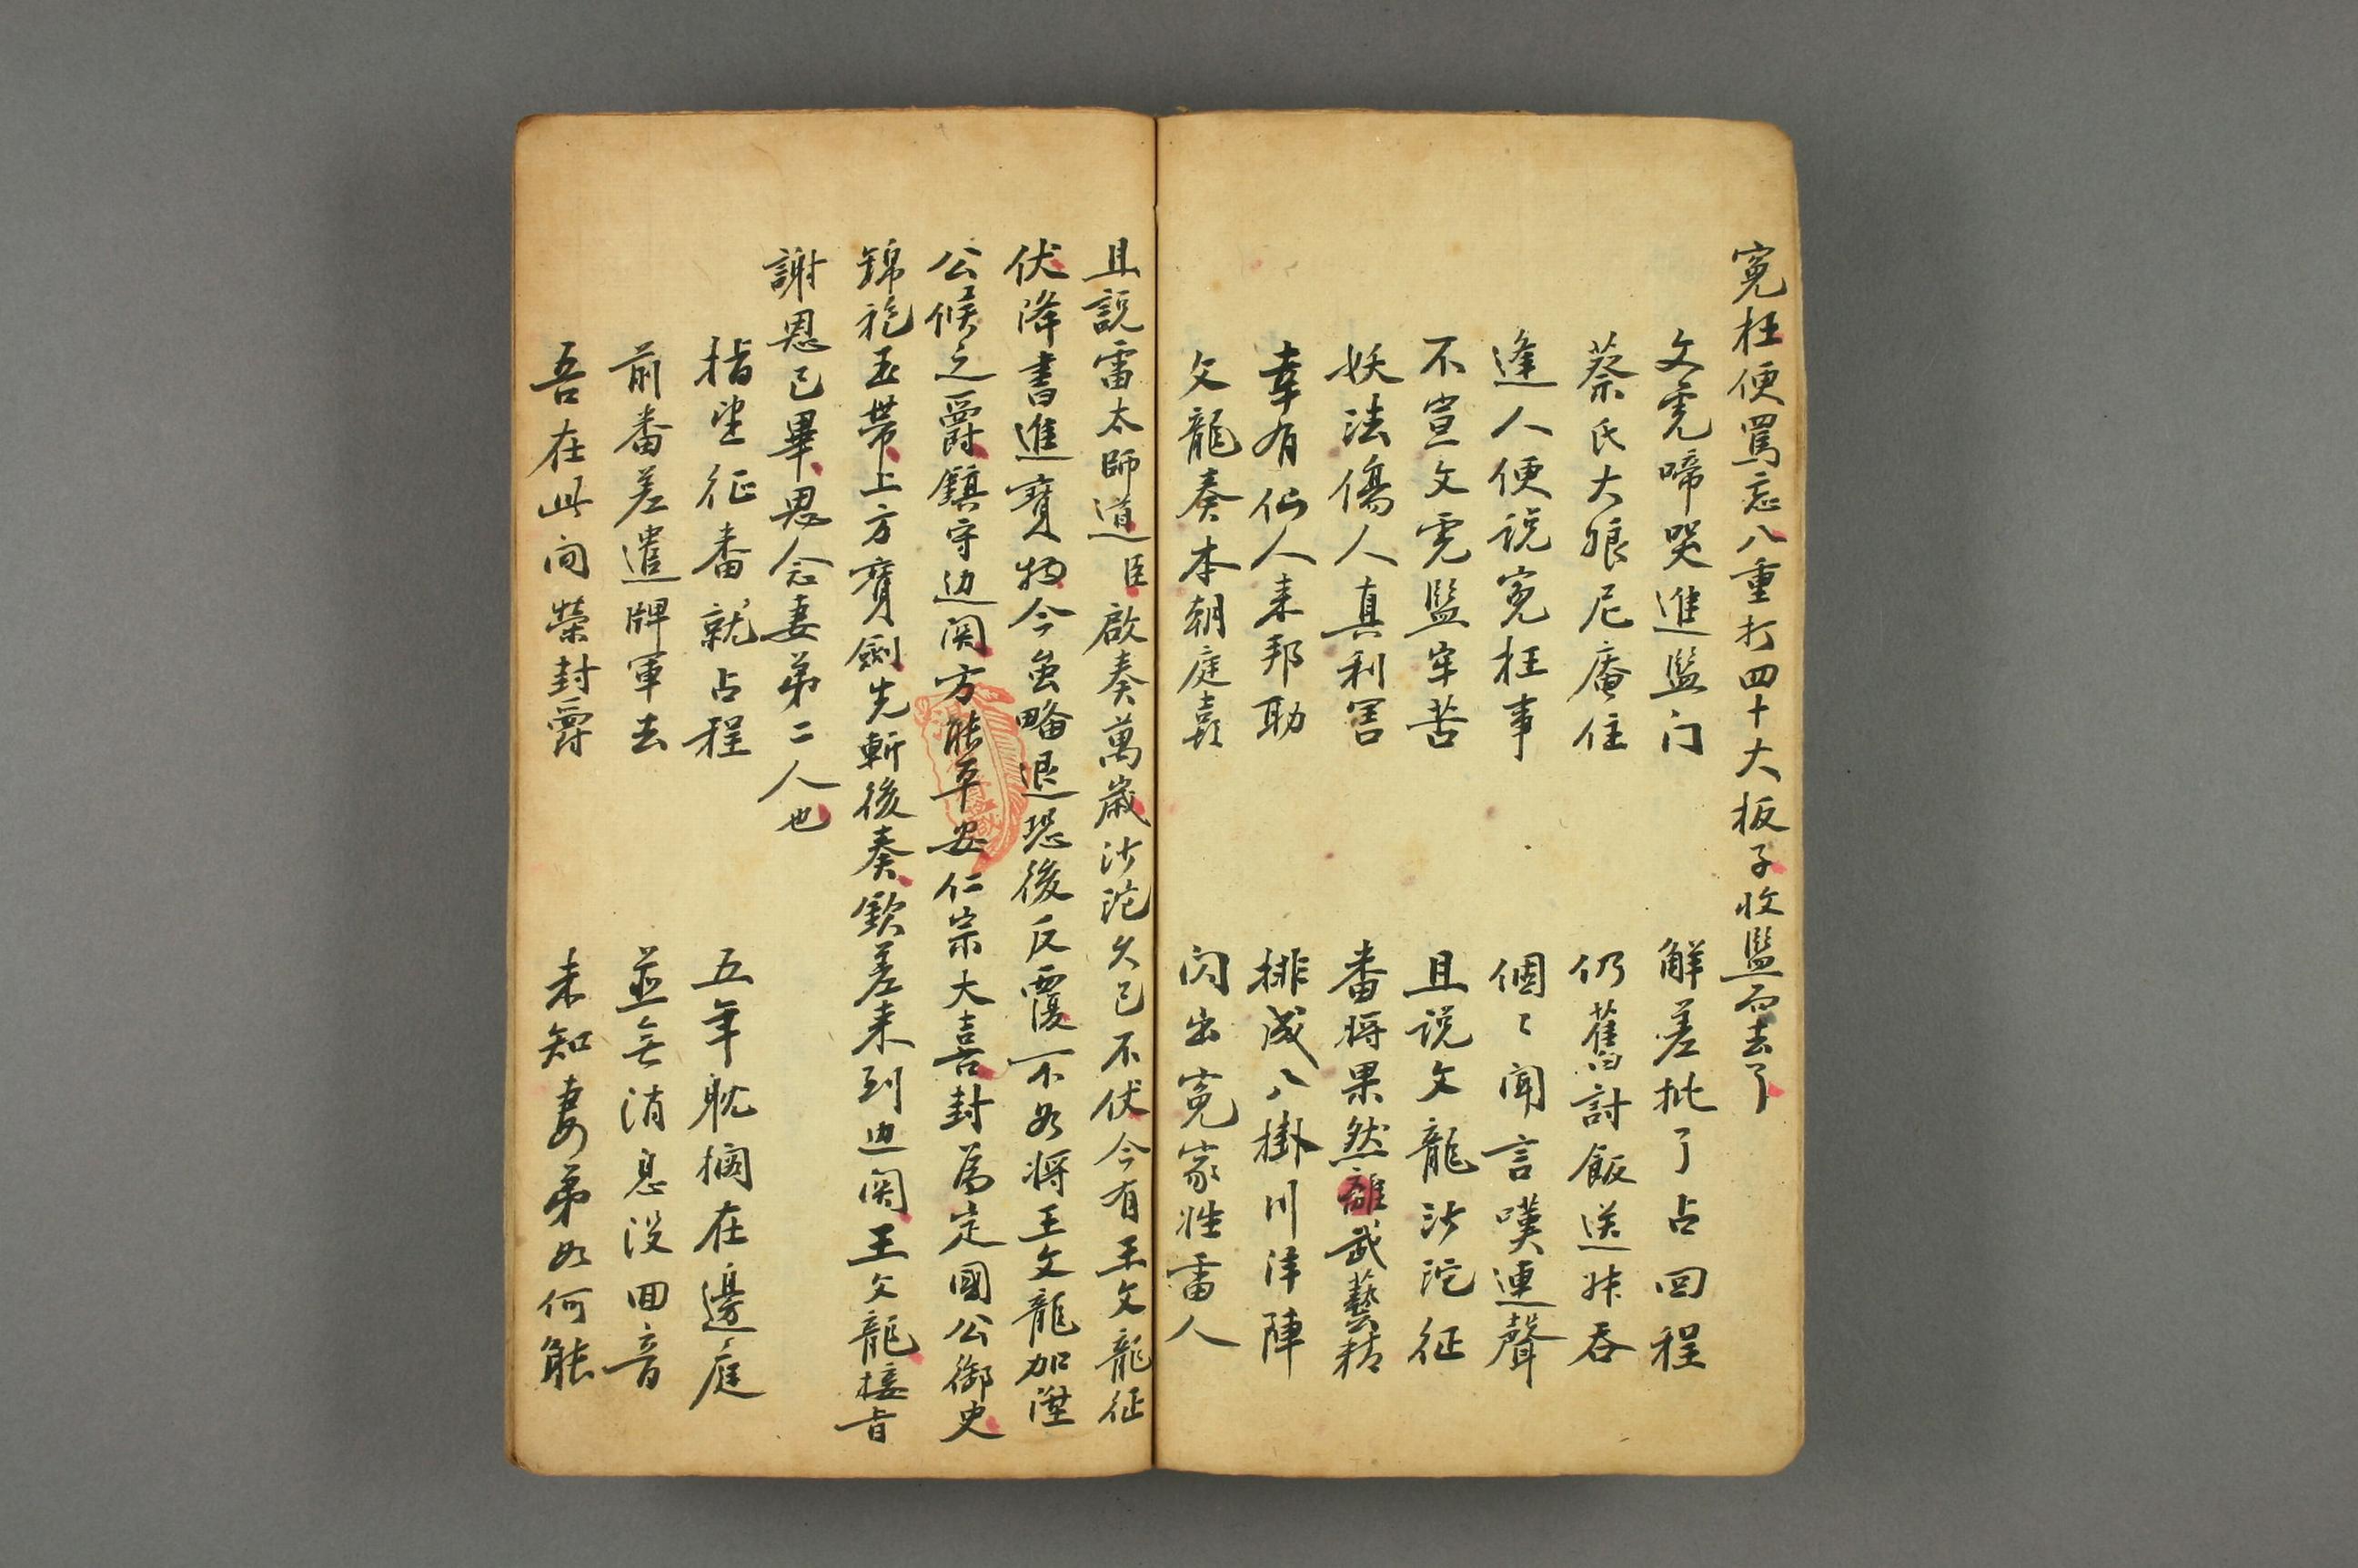 寃枉便罵忘八重打四十大板子收監而去了
文虎啼哭進監门 解差批了占回程
蔡氏大娘尼庵住 仍舊討飯送妹吞
逢人便说寃枉事 個〻聞言嘆連聲
不宣文虎監牢苦 且说文龍沙沱征
妖法傷人真利害 番将果然離武藝精
幸有仙人来邦助 排成八掛川洋陣
文龍奏本朝庭喜 闪出寃家姓雷人
且説雷太師道臣啟奏萬歲沙沱久已不伏今有王文龍征
伏降書進寶物今虽略退恐後反覆不如将王文龍加陞
公候之爵鎮守边関方能平安仁宗大喜封為定國公御史
錦袍玉帶上方寶劍先斬後奏欽差来到边関王文龍接旨
謝恩已畢思念妻弟二人也
指望征番就占程 五年耽擱在邊庭
前番差遣牌軍去 並無消息没回音
吾在此间榮封爵 未知妻弟如何能